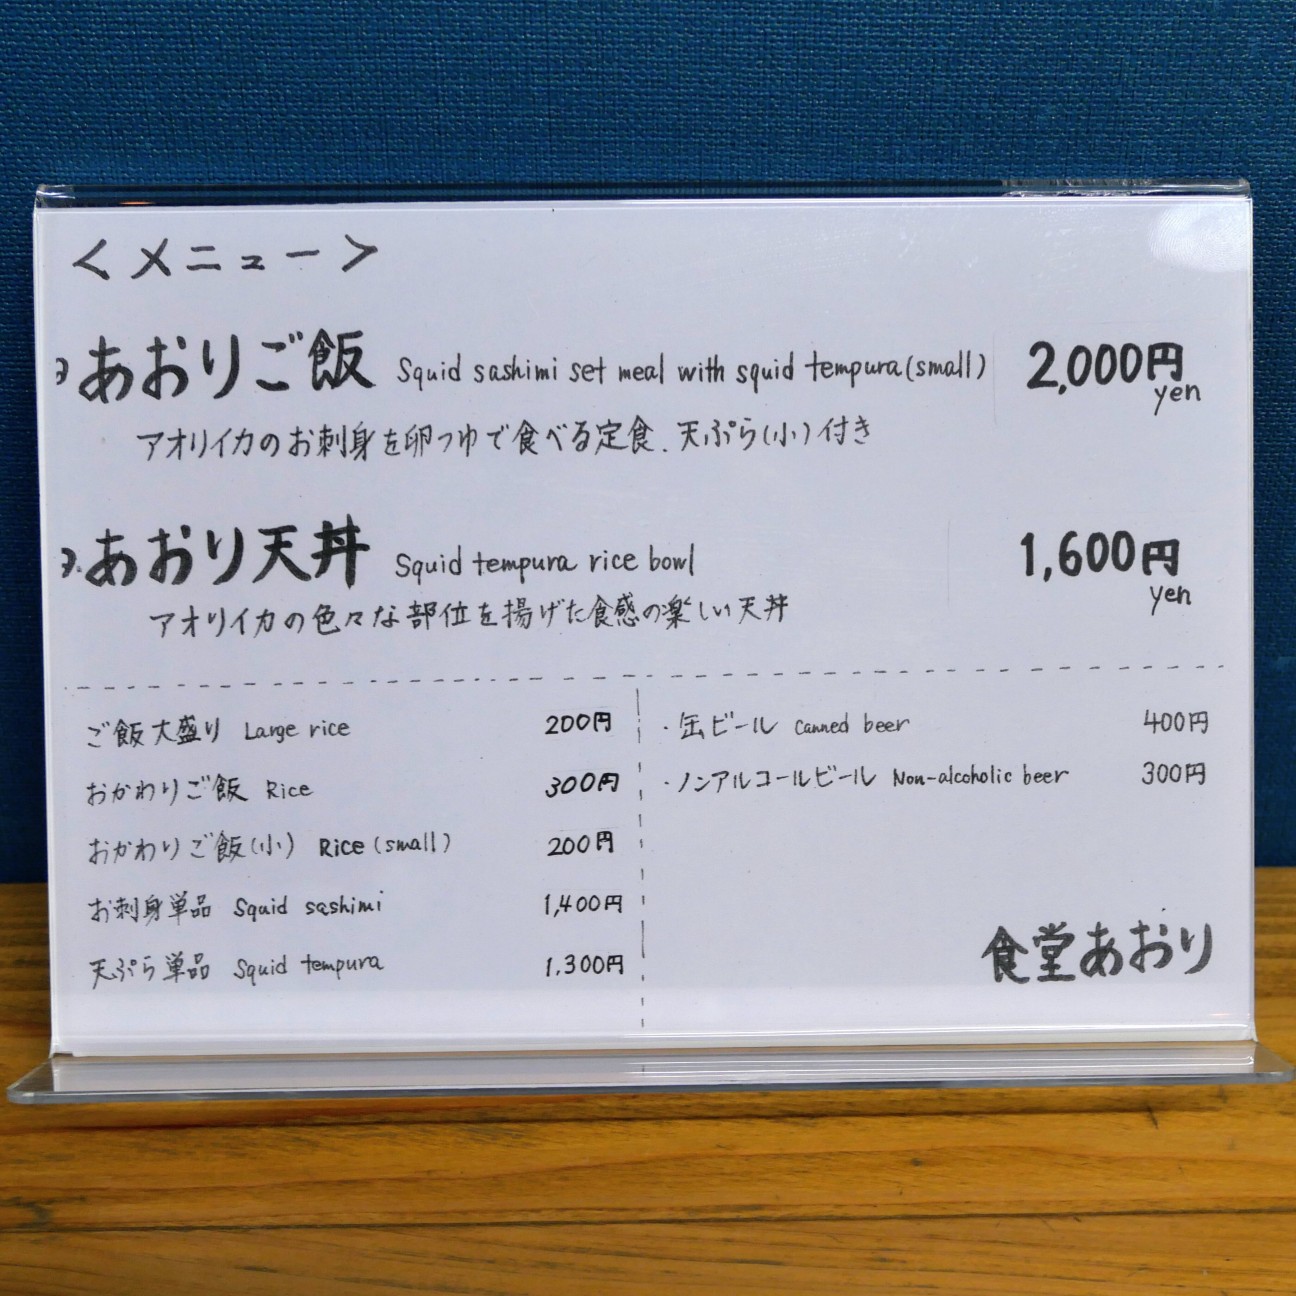 ＜メニュー＞
あおりご飯 Squid sashimi set meal with squid tempura(small) 2,000円
yen
アオリイカのお刺身を卵つゆで食べる定食．天ぷら(小)付き
あおり天丼 Squid tempura rice bowl 1,600円
yen
アオリイカの色々な部位を揚げた食感の楽しい天丼
ご飯大盛り Large rice 200円
おかわりご飯 Rice 300円
おかわりご飯(小) Rice (small) 200円
お刺身単品 Squid sashimi 1,400円
天ぷら単品 Squid tempura 1,300円
・缶ビール canned beer 400円
・ノンアルコールビール Non-alcoholic beer 300円
食堂あおり